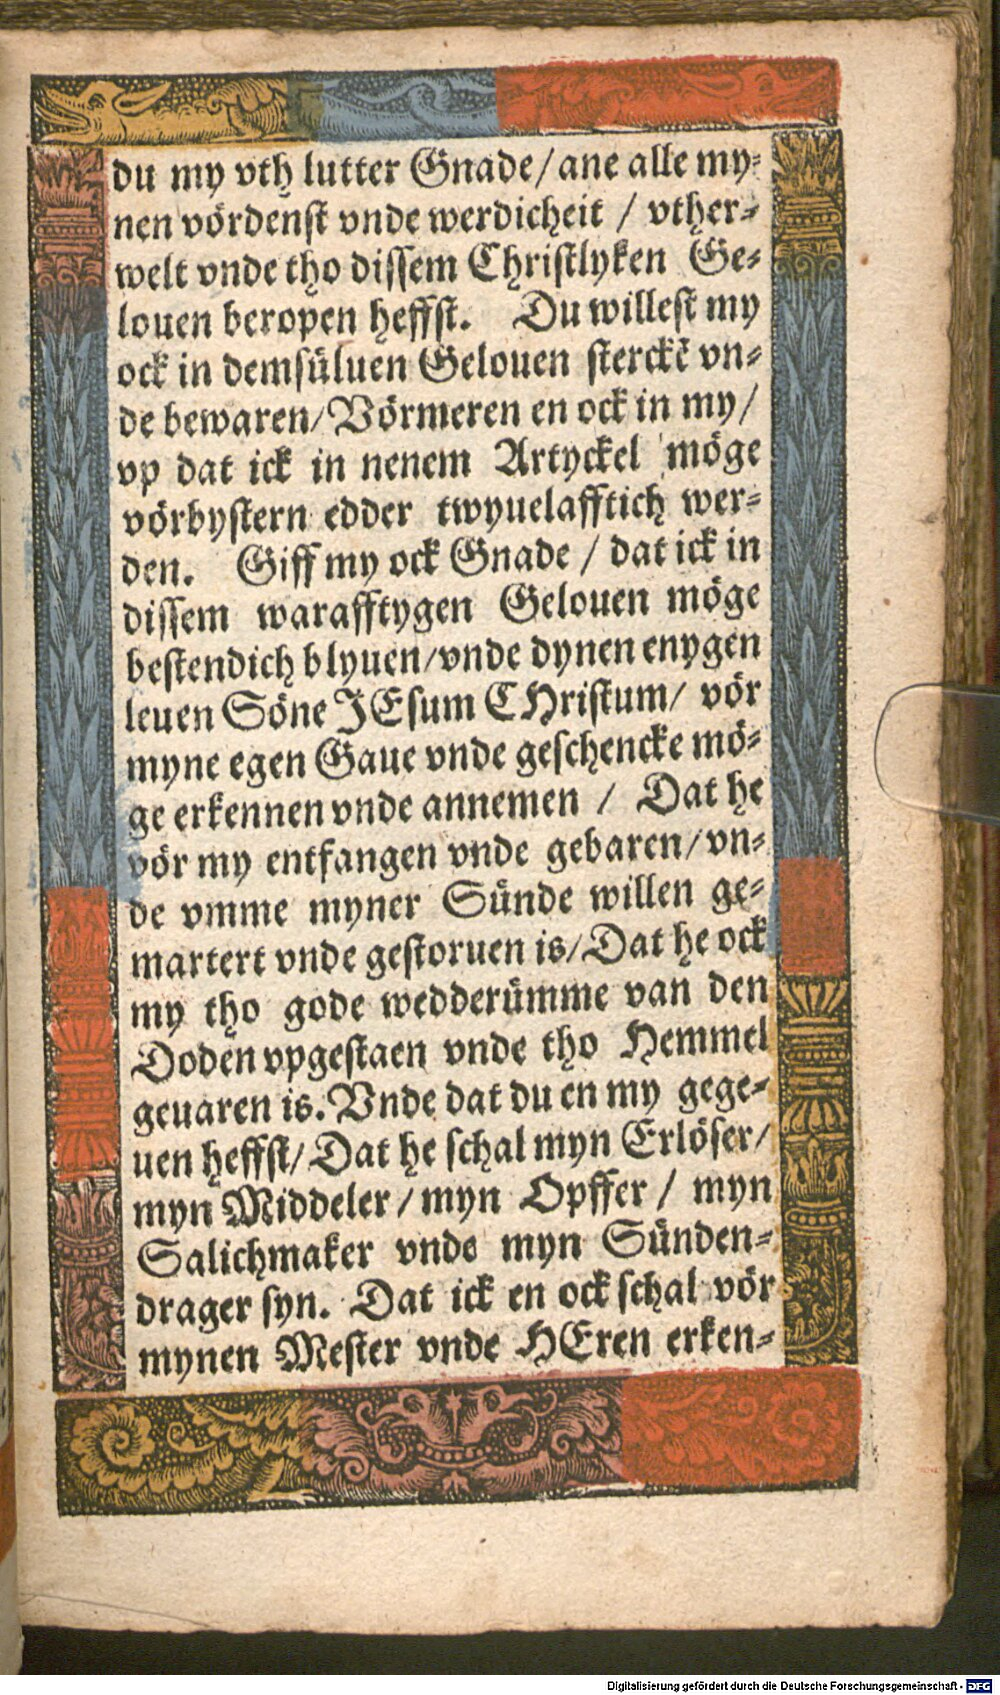 du my vth lutter Gnade/ ane alle my-
nen vördenst vnde werdicheit / vther-
welt vnde tho dissem Christlyken Ge-
louen beropen heffst. Du willest my
ock in demsüluen Gelouen sterckē vn-
de bewaren/ Vörmeren en ock in my/
vp dat ick in nenem Artyckel möge
vörbystern edder twyuelafftich wer-
den. Giff my ock Gnade / dat ick in
dissem warafftygen Gelouen möge
bestendich blyuen/ vnde dynen enygen
leuen Söne JEsum CHristum/ vör
myne egen Gaue vnde geschencke mö-
ge erkennen vnde annemen / Dat he
vör my entfangen vnde gebaren/ vn-
de vmme myner Sünde willen ge-
martert vnde gestoruen is/ Dat he ock
my tho gode wedderümme van den
Doden vpgestaen vnde tho Hemmel
geuaren is. Vnde dat du en my gege-
uen heffst/ Dat he schal myn Erlöser/
myn Middeler / myn Opffer / myn
Salichmaker vnde myn Sünden-
drager syn. Dat ick en ock schal vör
mynen Mester vnde HEren erken-
Digitalisierung gefördert durch die Deutsche Forschungsgemeinschaft - DFG